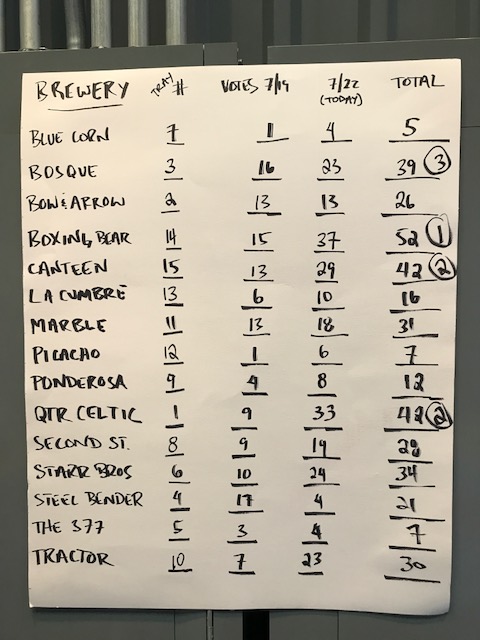 BREWERY TRAY # VOTES 7/19 7/22 (TODAY) TOTAL
BLUE CORN 7 1 4 5
BOSQUE 3 16 23 39 3
BOW & ARROW 2 13 13 26
BOXING BEAR 14 15 37 52 1
CANTEEN 15 13 29 42 2
LA CUMBRE 13 6 10 16
MARBLE 11 13 18 31
PICACHO 12 1 6 7
PONDEROSA 9 4 8 12
QTR CELTIC 1 9 33 42 2
SECOND ST. 8 9 19 28
STARR BROS 6 10 24 34
STEEL BENDER 4 17 4 21
THE 377 5 3 4 7
TRACTOR 10 7 23 30